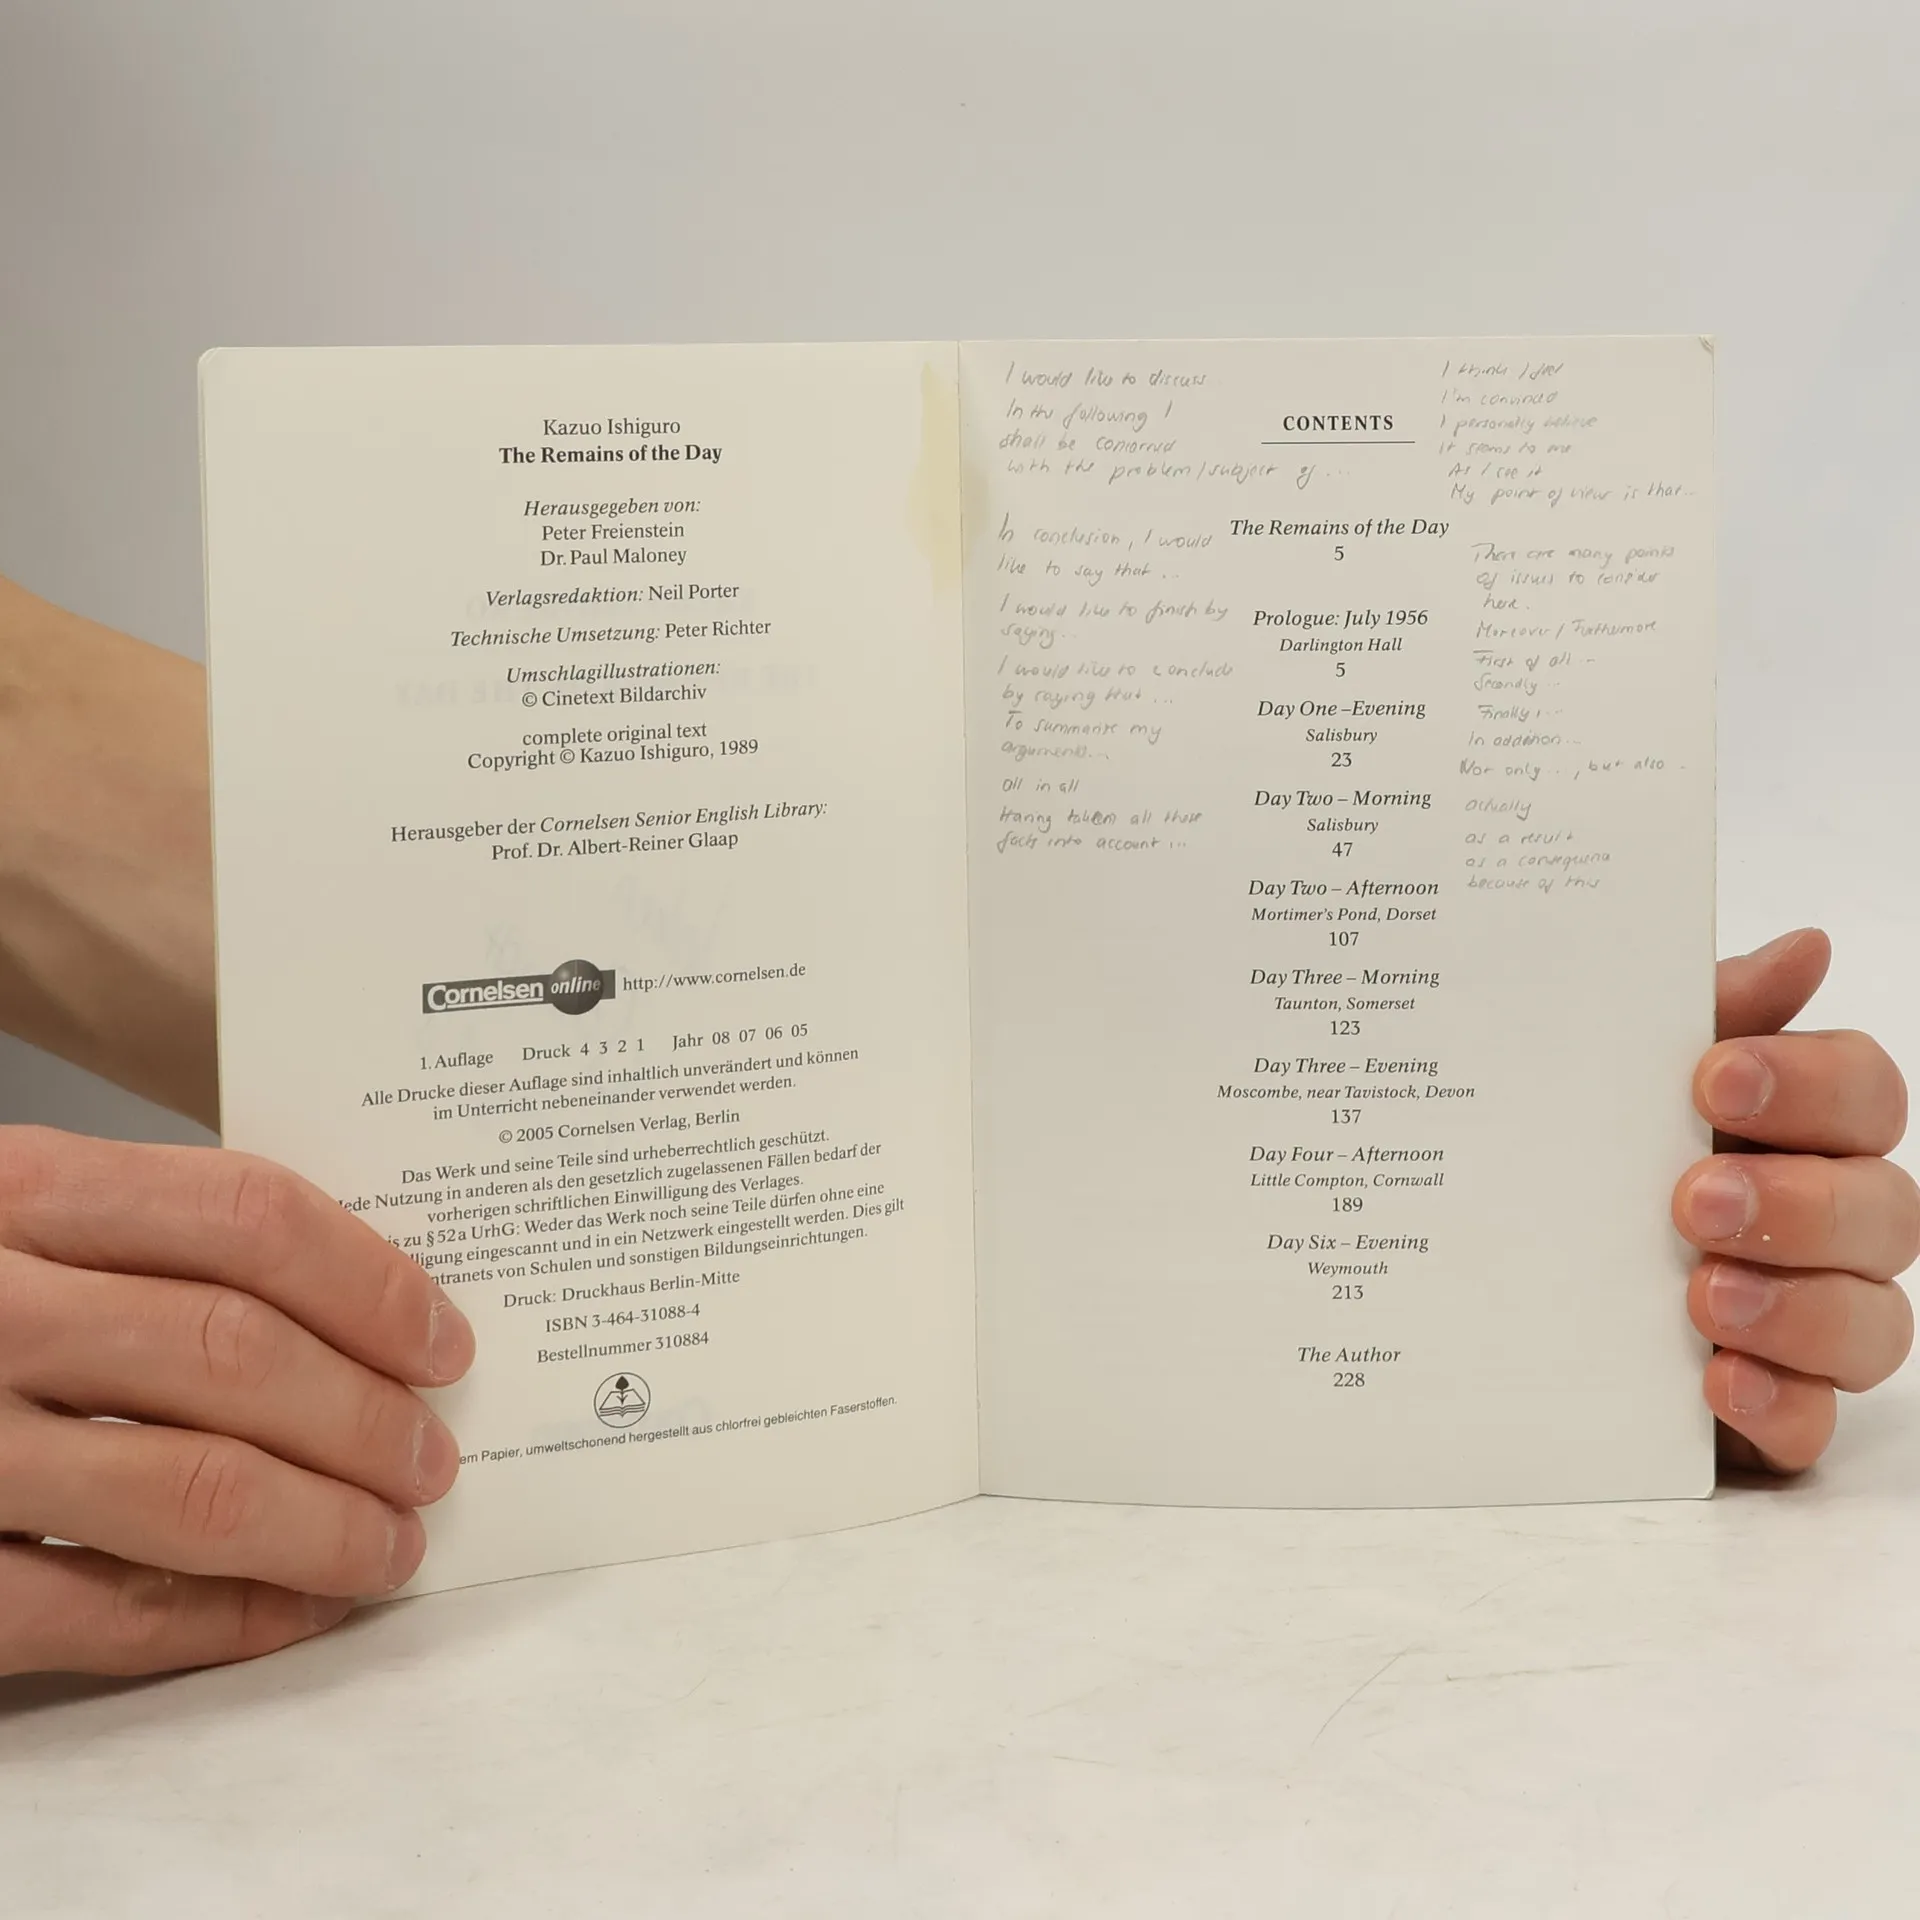 Kazuo Ishiguro
The Remains of the Day
Herausgegeben von:
Peter Freienstein
Dr. Paul Maloney
Verlagsredaktion: Neil Porter
Technische Umsetzung: Peter Richter
Umschlagillustrationen:
© Cinetext Bildarchiv
complete original text
Copyright © Kazuo Ishiguro, 1989
Herausgeber der Cornelsen Senior English Library:
Prof. Dr. Albert-Reiner Glaap
Cornelsen online http://www.cornelsen.de
1. Auflage Druck 4 3 2 1 Jahr 08 07 06 05
Alle Drucke dieser Auflage sind inhaltlich unverändert und können
im Unterricht nebeneinander verwendet werden.
© 2005 Cornelsen Verlag, Berlin
Das Werk und seine Teile sind urheberrechtlich geschützt.
Jede Nutzung in anderen als den gesetzlich zugelassenen Fällen bedarf der
vorherigen schriftlichen Einwilligung des Verlages.
zu § 52 a UrhG: Weder das Werk noch seine Teile dürfen ohne eine
eingescannt und in ein Netzwerk eingestellt werden. Dies gilt
von Schulen und sonstigen Bildungseinrichtungen.
Druck: Druckhaus Berlin-Mitte
ISBN 3-464-31088-4
Bestellnummer 310884
Papier, umweltschonend hergestellt aus chlorfrei gebleichten Faserstoffen.
I would like to discuss...
In the following I
shall be concerned
with the problem / subject of ...
In conclusion, I would
like to say that ...
I would like to finish by
saying...
I would like to conclude
by saying that ...
To summarise my
arguments...
All in all
Having taken all these
facts into account ...
CONTENTS
The Remains of the Day
5
Prologue: July 1956
Darlington Hall
5
Day One –Evening
Salisbury
23
Day Two – Morning
Salisbury
47
Day Two – Afternoon
Mortimer's Pond, Dorset
107
Day Three – Morning
Taunton, Somerset
123
Day Three – Evening
Moscombe, near Tavistock, Devon
137
Day Four – Afternoon
Little Compton, Cornwall
189
Day Six – Evening
Weymouth
213
The Author
228
I think I feel
I'm convinced
I personally believe
It seems to me
As I see it
My point of view is that...
There are many points
of issues to consider
here.
Moreover / Furthermore
First of all ...
Secondly ...
Finally, ...
In addition...
Not only ..., but also ..
actually
as a result
as a consequence
because of this